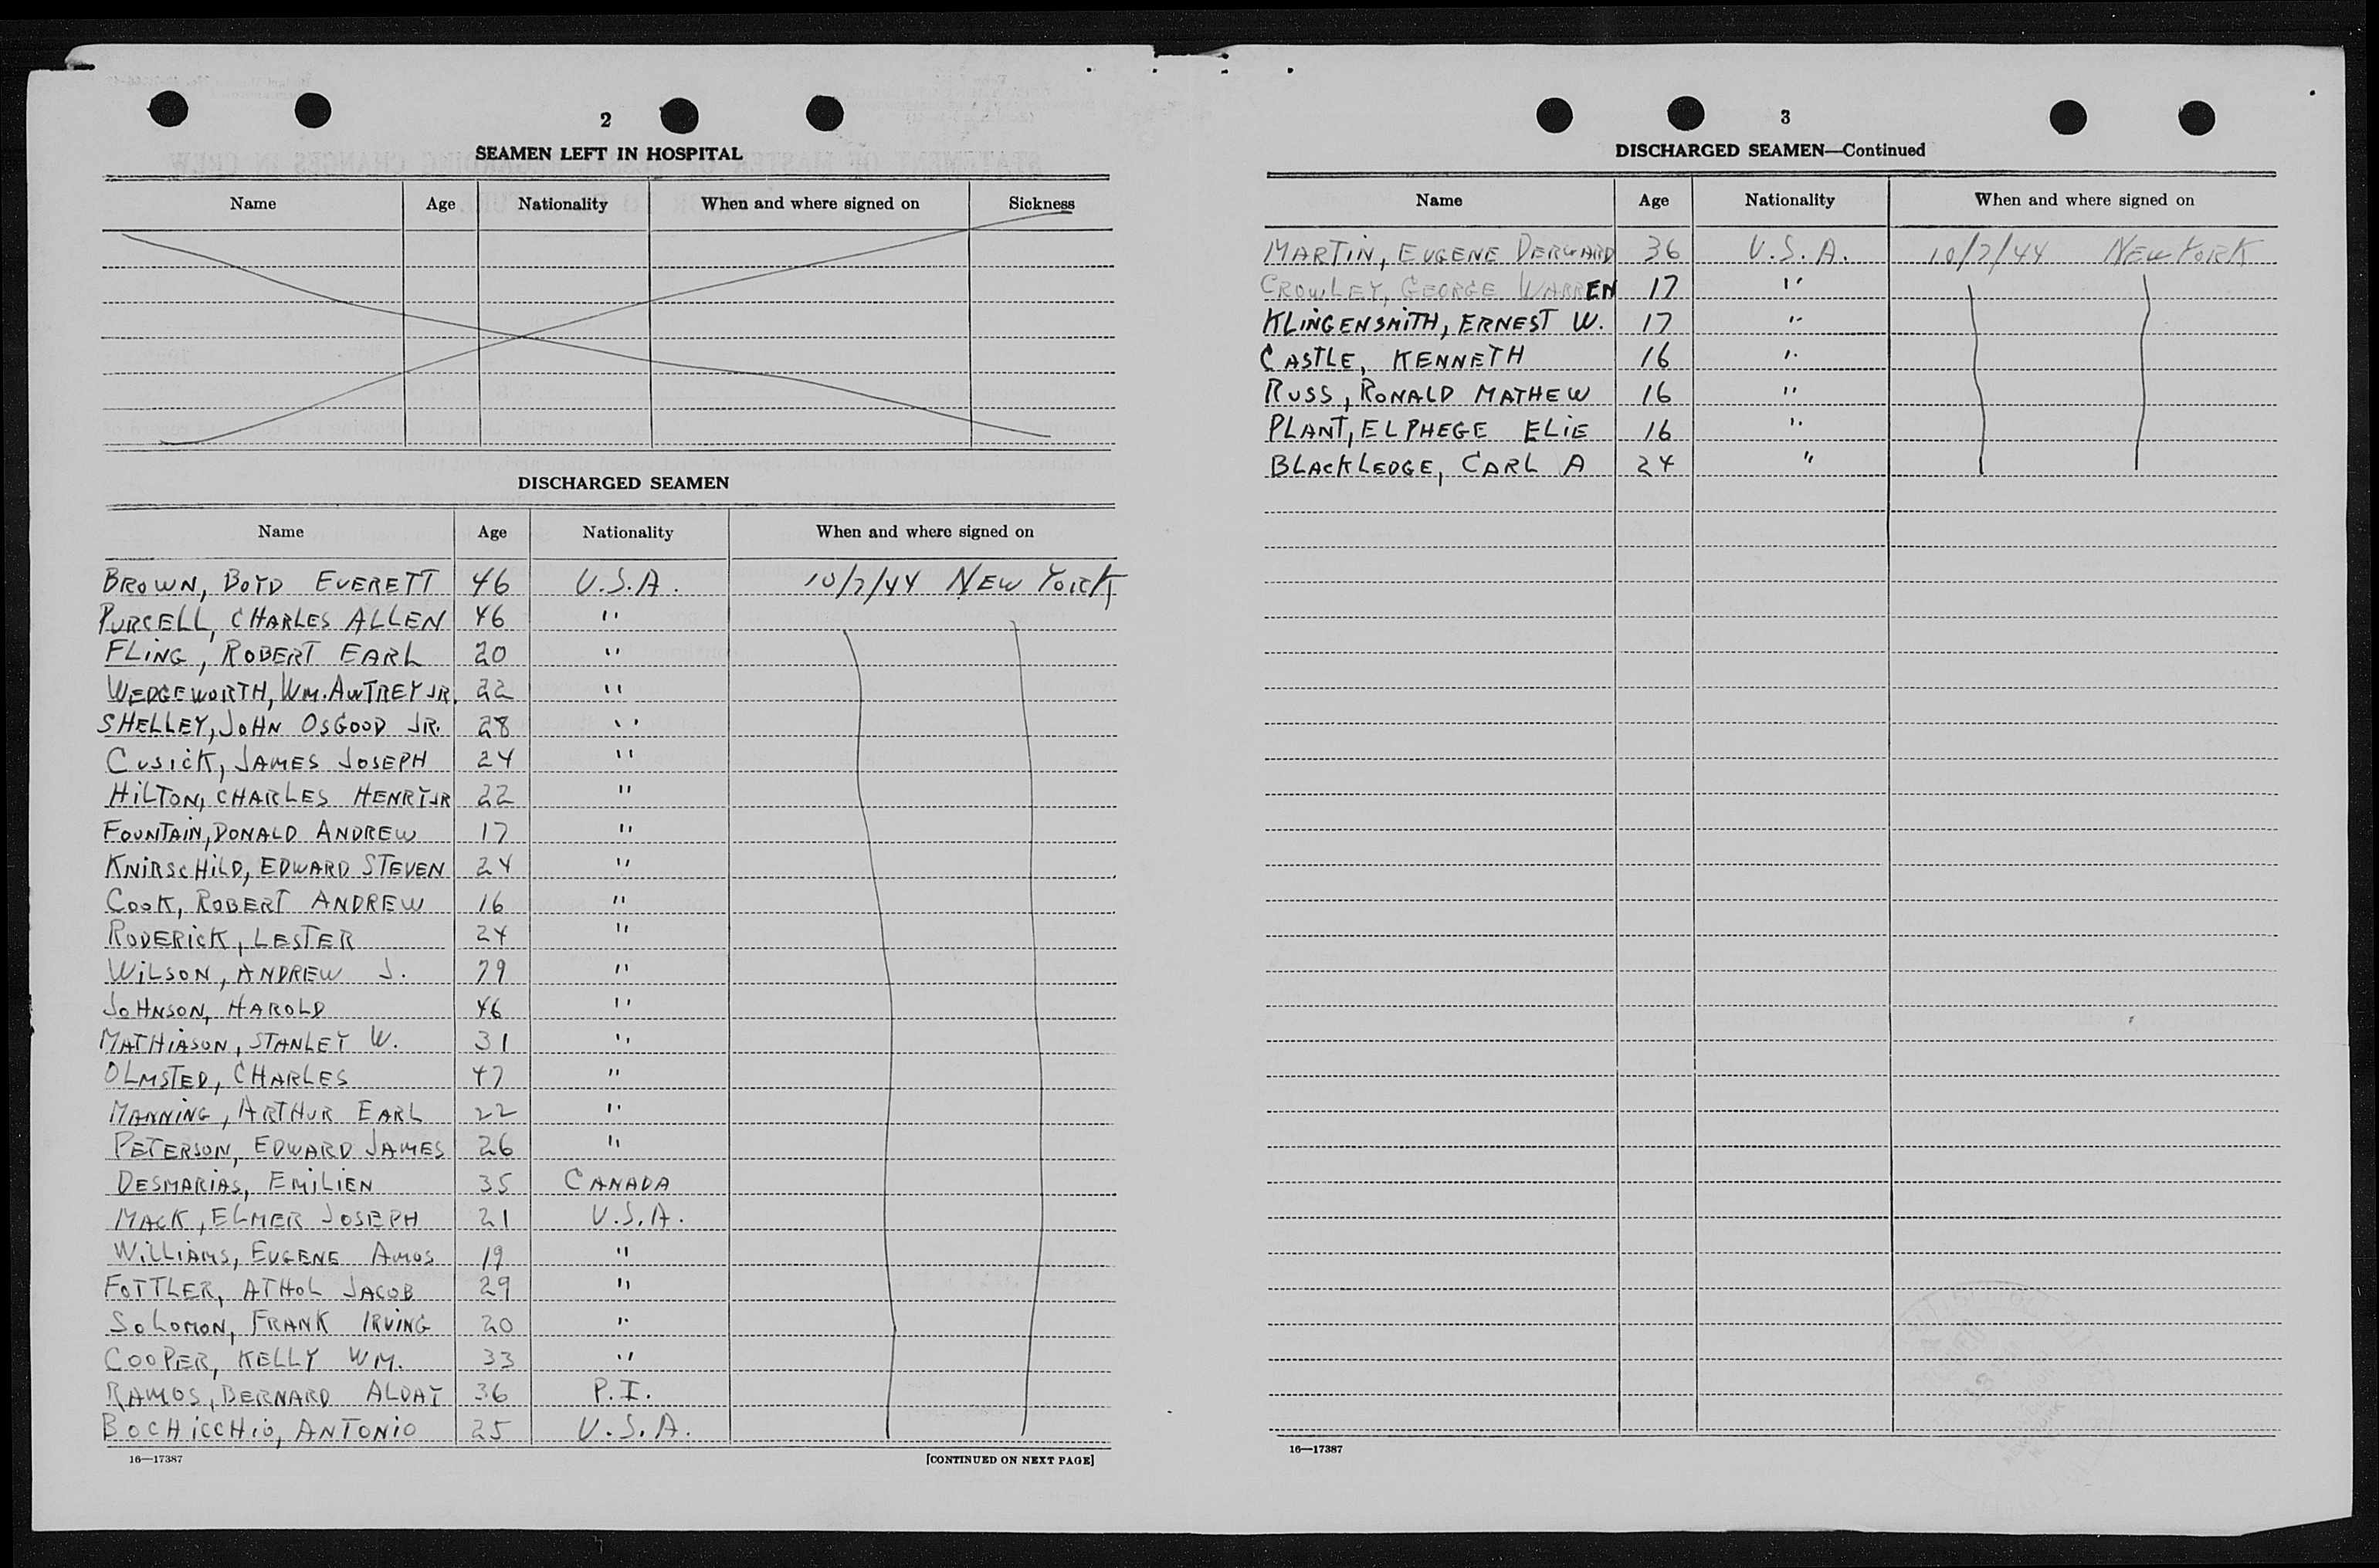 2
SEAMEN LEFT IN HOSPITAL
Name Age Nationality When and where signed on Sickness
DISCHARGED SEAMEN
Name Age Nationality When and where signed on
BROWN, BOYD EVERETT 46 U.S.A. 10/7/44 NEW YORK
PURCELL, CHARLES ALLEN 46 "
FLING, ROBERT EARL 20 "
WEDGEWORTH, WM. AWTREY JR. 22 "
SHELLEY, JOHN OSGOOD JR. 28 "
CUSICK, JAMES JOSEPH 24 "
HILTON, CHARLES HENRY JR 22 "
FOUNTAIN, DONALD ANDREW 17 "
KNIRSCHILD, EDWARD STEVEN 24 "
COOK, ROBERT ANDREW 16 "
RODERICK, LESTER 24 "
WILSON, ANDREW J. 29 "
JOHNSON, HAROLD 46 "
MATHIASON, STANLEY W. 31 "
OLMSTED, CHARLES 47 "
MANNING, ARTHUR EARL 22 "
PETERSON, EDWARD JAMES 26 "
DESMARIAS, EMILIEN 35 CANADA
MACK, ELMER JOSEPH 21 U.S.A.
WILLIAMS, EUGENE AMOS 19 "
FOTTLER, ATHOL JACOB 29 "
SOLOMON, FRANK IRVING 20 "
COOPER, KELLY WM. 33 "
RAMOS, BERNARD ALDAY 36 P.I.
BOCHICCHIO, ANTONIO 25 U.S.A.
16—17387 [CONTINUED ON NEXT PAGE]
3
DISCHARGED SEAMEN—Continued
Name Age Nationality When and where signed on
MARTIN, EUGENE DERWARD 36 U.S.A. 10/7/44 NEW YORK
CROWLEY, GEORGE WARREN 17 "
KLINGENSMITH, ERNEST W. 17 "
CASTLE, KENNETH 16 "
RUSS, RONALD MATHEW 16 "
PLANT, ELPHEGE ELIE 16 "
BLACKLEDGE, CARL A 24 "
16—17387